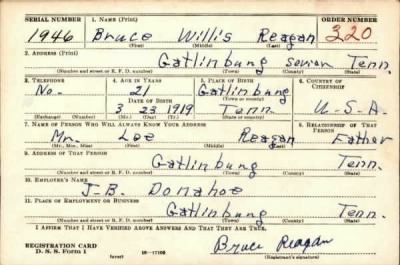 SERIAL NUMBER 1. NAME (Print) ORDER NUMBER
1946 Bruce Willis Reagan 320
(First) (Middle) (Last)
2. ADDRESS (Print)
Gatlinburg Sevier Tenn.
(Number and street or R. F. D. number) (Town) (County) (State)
3. TELEPHONE 4. AGE IN YEARS 5. PLACE OF BIRTH 6. COUNTRY OF CITIZENSHIP
No. 21 Gatlinburg
DATE OF BIRTH (Town or county)
3 23 1919 Tenn. U-S-A.
(Exchange) (Number) (Mo.) (Day) (Yr.) (State or country)
7. NAME OF PERSON WHO WILL ALWAYS KNOW YOUR ADDRESS 8. RELATIONSHIP OF THAT PERSON
Mr. Lee Reagan Father
(Mr., Mrs., Miss) (First) (Middle) (Last)
9. ADDRESS OF THAT PERSON
Gatlinburg Tenn.
(Number and street or R. F. D. number) (Town) (County) (State)
10. EMPLOYER'S NAME
J-B. Donahoe
11. PLACE OF EMPLOYMENT OR BUSINESS
Gatlinburg Tenn.
(Number and street or R. F. D. number) (Town) (County) (State)
I AFFIRM THAT I HAVE VERIFIED ABOVE ANSWERS AND THAT THEY ARE TRUE.
REGISTRATION CARD Bruce Reagan
D. S. S. Form 1 (over) 16—17105 (Registrant's signature)